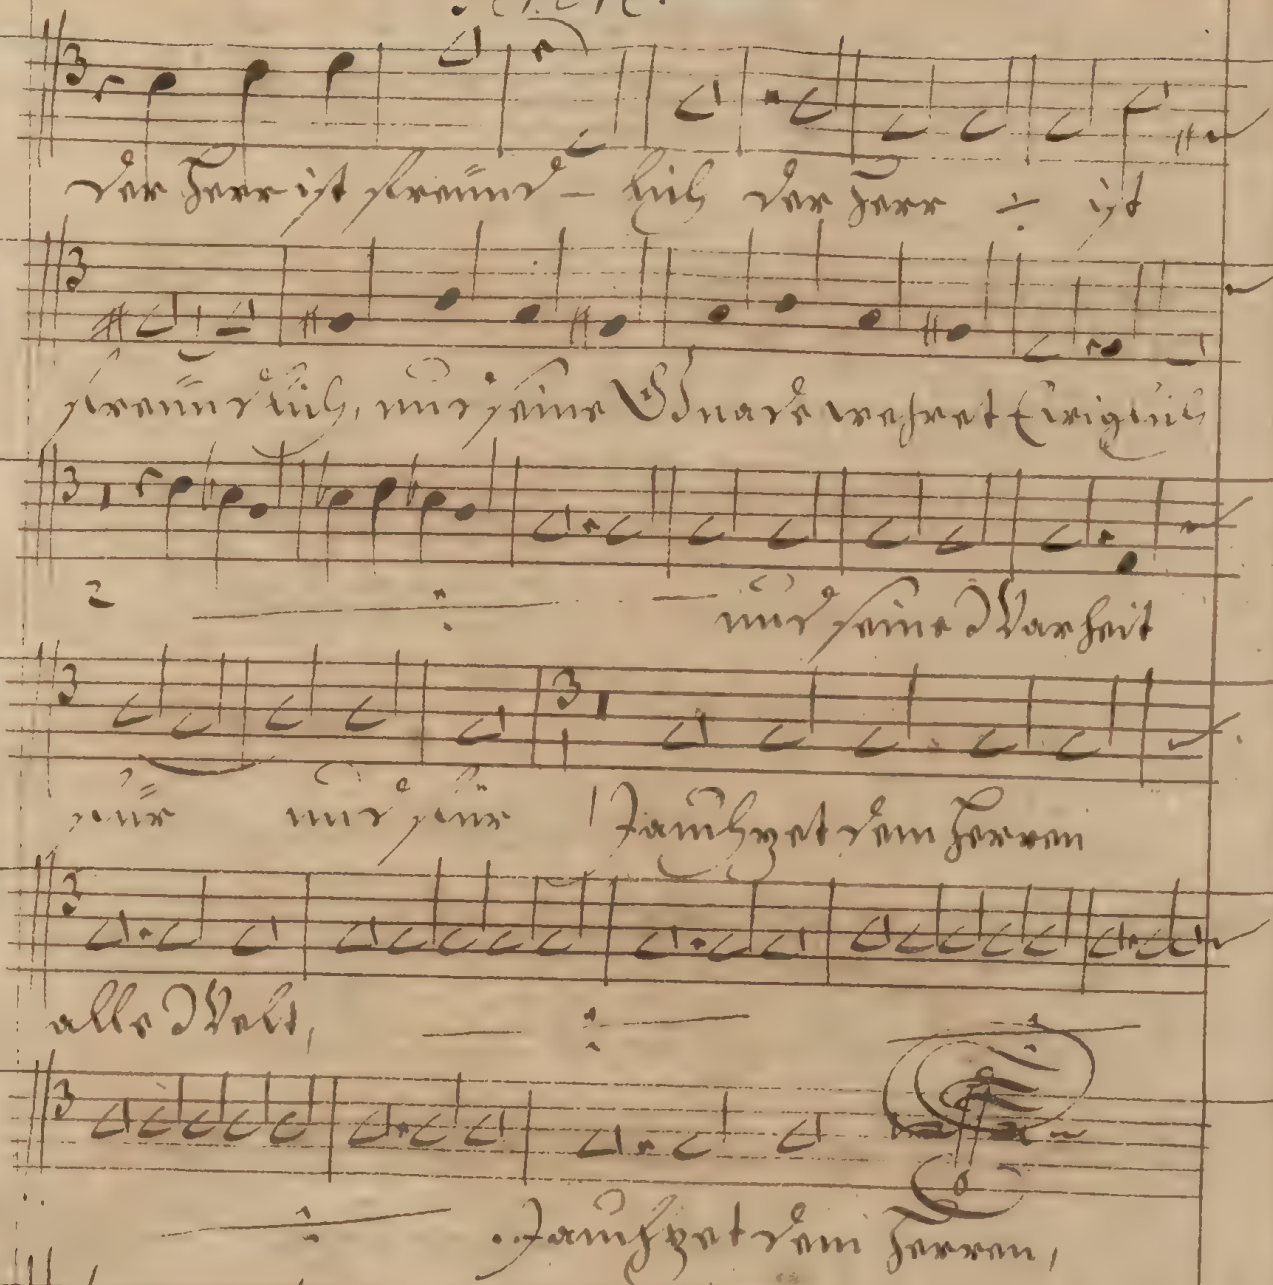 der Herr ist freünd – lich der Herr ÷ ist
freündlich, und seine Gnade wehret Ewiglich
2 ÷ und seine Warheit
für und für Jauchzet dem Herren
alle Welt, ÷
÷ Jauchzet dem Herren,